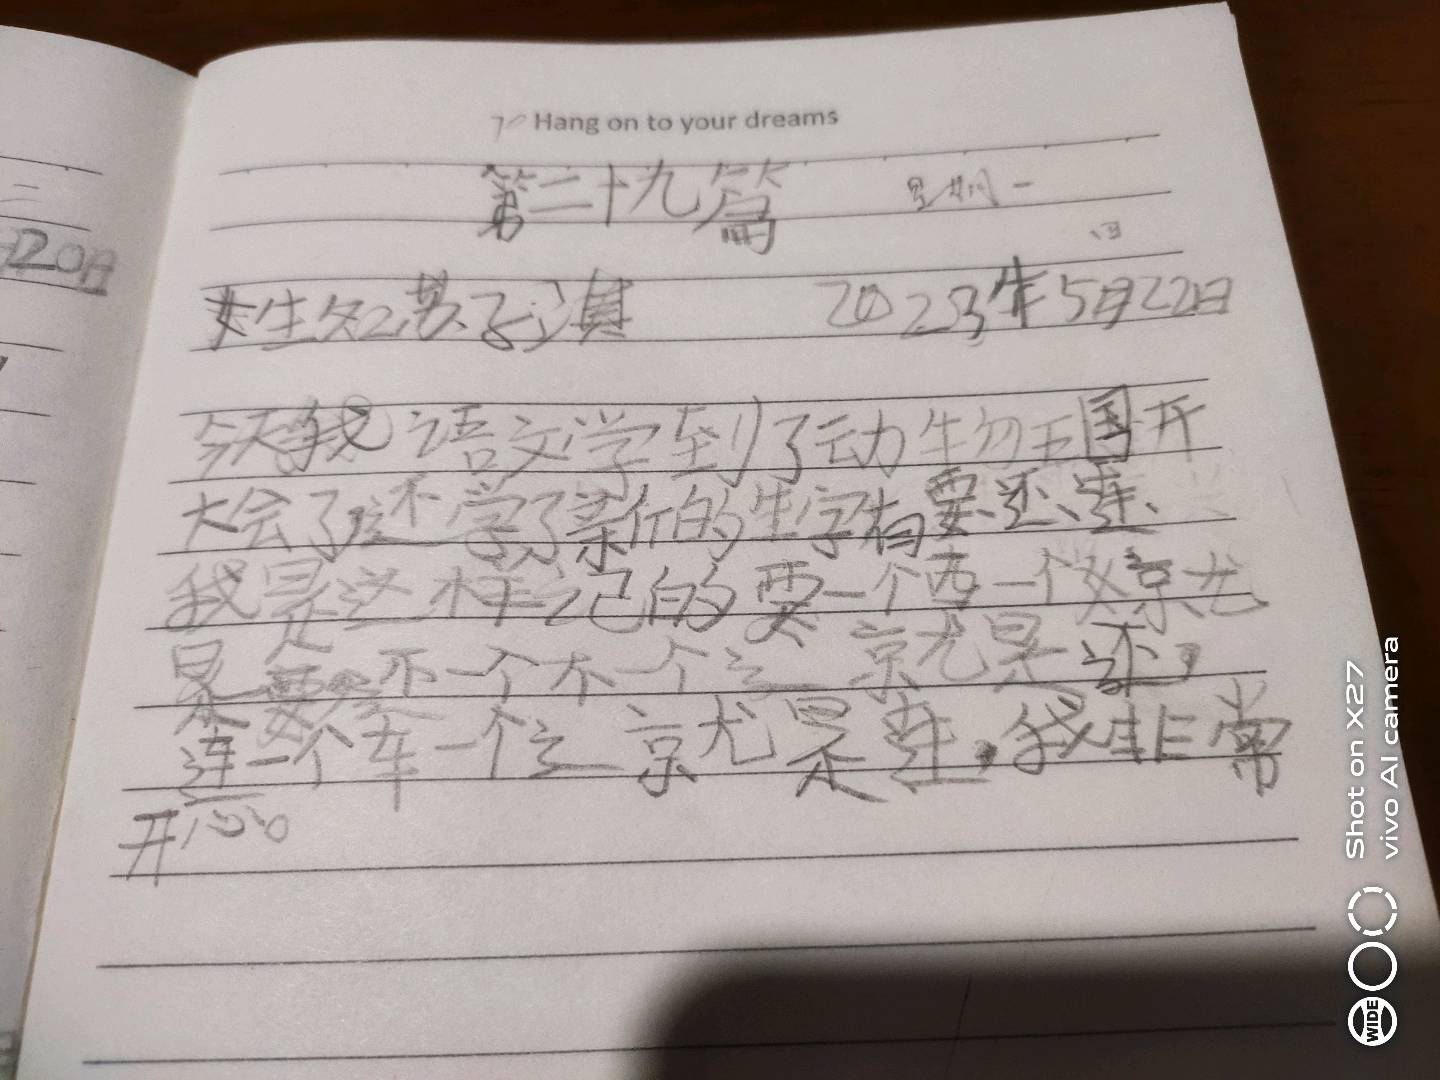 Hang on to your dreams
第二十九篇 星期一
女生如 苏子淇 2023年5月22日
今天我语文学到了动物王国开
大会了,还学了新的生字有要、还、连、
我是这样记的要一个西一个女京尤
是要,还一个不一个辶京尤是还,
连一个车一个辶京尤是连。我非常
开心。
20日
Shot on X27
vivo AI camera
WIDE